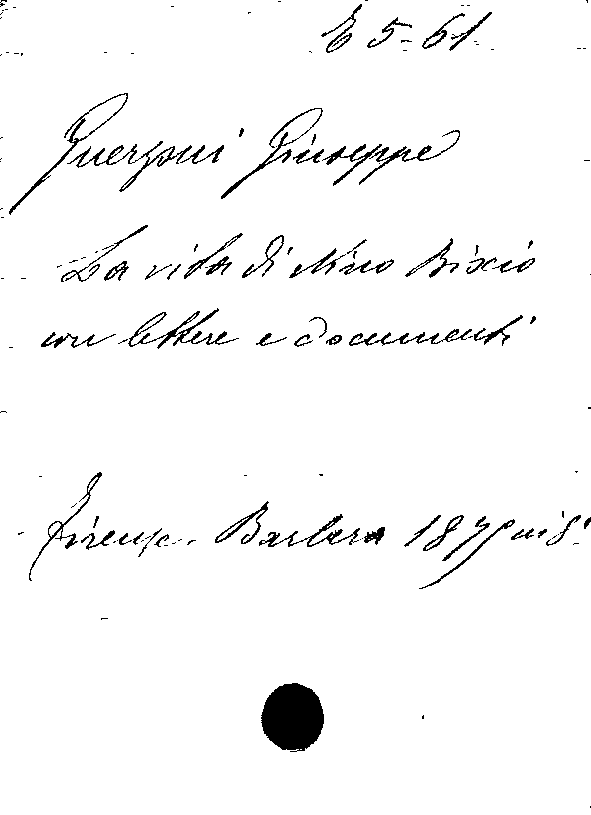 E 5-61
Guerzoni Giuseppe
La vita di Nino Bixio
con lettere e documenti
Firenze. Barbera 1875 in 8°